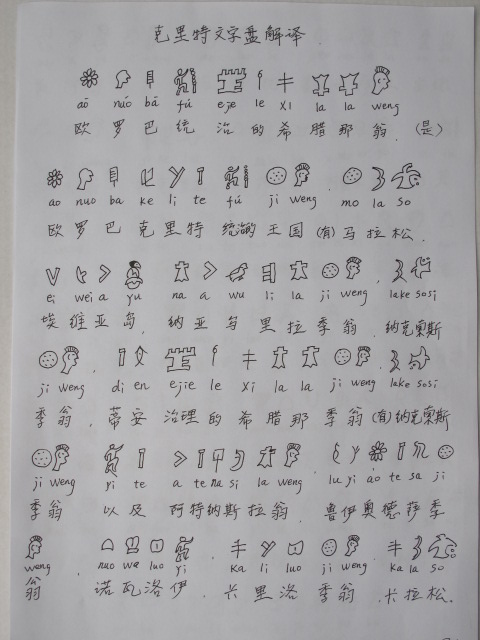 克里特文字盘解译
aō nuó bā fú eje le xi la la weng
欧罗巴统治的希腊那翁.(是)
ao nuo ba ke li te fú ji weng mo la so
欧罗巴克里特统治的王国(有)马拉松.
ei wei a yu na a wu li la ji weng lake sosi
埃维亚岛,纳亚乌里拉季翁.纳克索斯
ji weng di en ejie le xi la la ji weng lake sosi
季翁,蒂安治理的希腊那季翁(有)纳克索斯
ji weng yi te a te na si la weng lu yi ao te sa ji
季翁 以及 阿特纳斯拉翁.鲁伊奥德萨季
weng nuo wa luo yi ka li luo ji weng ka la so
翁 诺瓦洛伊.卡里洛季翁.卡拉松.